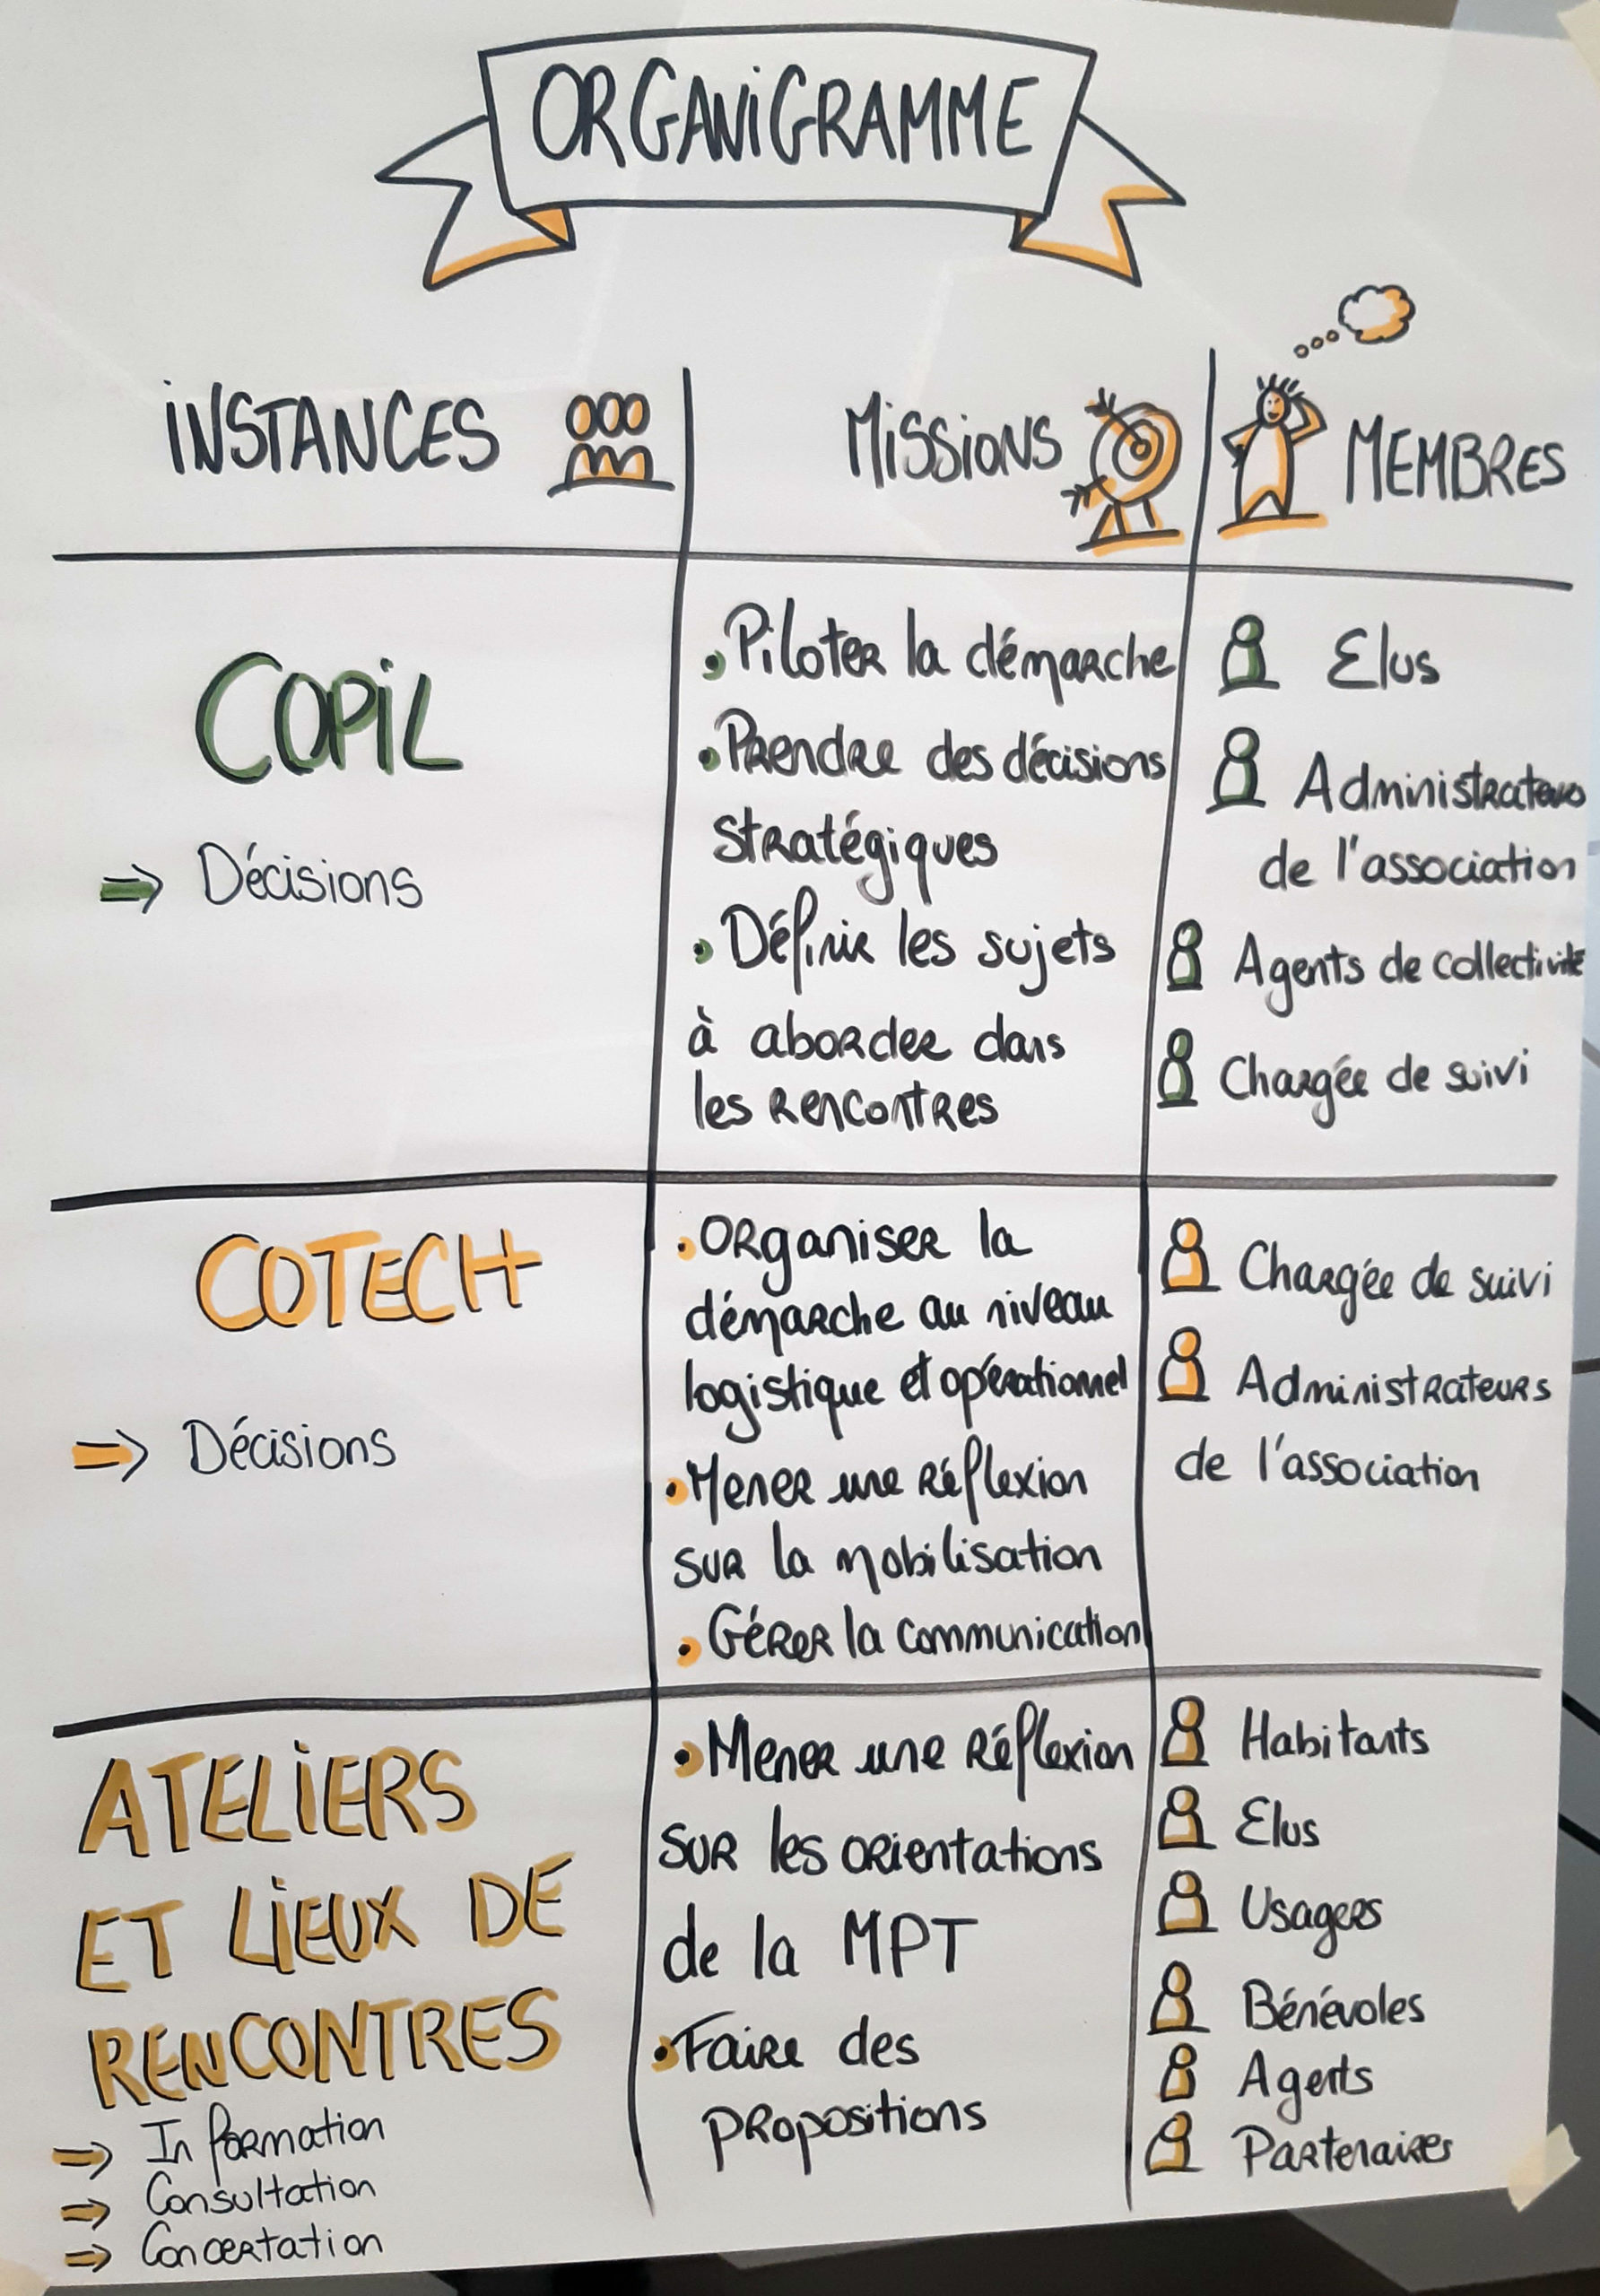 ORGANiGRAMME
iNSTANCES
MiSSiONS
MEMBRES
COPiL
⇒ Décisions
• Piloter la démarche
• Prendre des décisions
stratégiques
• Définir les sujets
à aborder dans
les rencontres
Elus
Administrateurs
de l'association
Agents de collectivité
Chargée de suivi
COTECH
⇒ Décisions
• Organiser la
démarche au niveau
logistique et opérationnel
• Mener une réflexion
sur la mobilisation
• Gérer la communication
Chargée de suivi
Administrateurs
de l'association
ATELiERS
ET LiEUX DE
RENCONTRES
⇒ Information
⇒ Consultation
⇒ Concertation
• Mener une réflexion
sur les orientations
de la MPT
• Faire des
propositions
Habitants
Elus
Usagers
Bénévoles
Agents
Partenaires